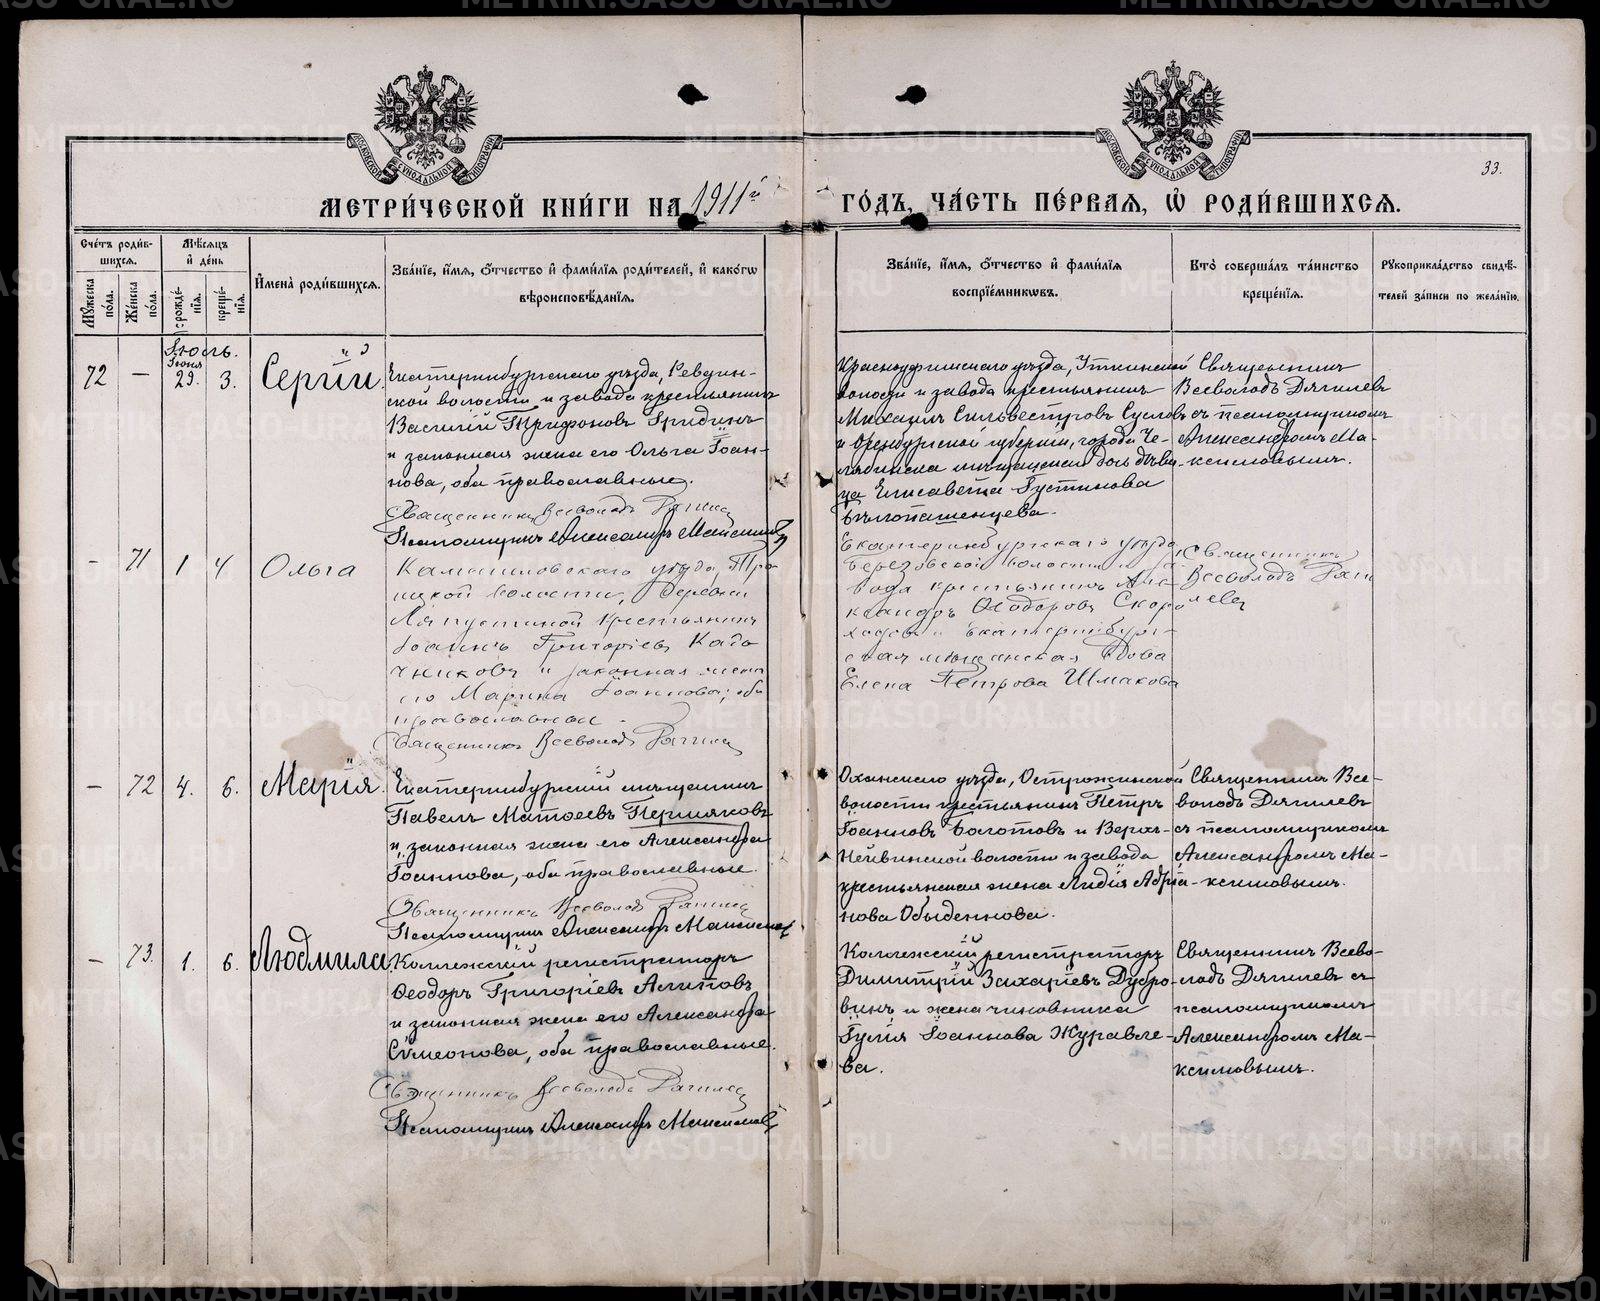 МЕТРИ́ЧЕСКОЙ КНИ́ГИ НА 1911й ГО́ДЪ, ЧА́СТЬ ПЕ́РВАЯ, Ѡ҆ РОДИ́ВШИХСЯ.
33.
Сче́тъ роди́в-
шихся.
Мѣ́сяцъ
и҆ де́нь
Му́жеска
по́ла.
Же́нска
по́ла.
рожде́-
нїя.
креще́-
нїя.
И҆мена̀ роди́вшихся.
Зва́нїе, и҆́мя, ѻ҆́тчество и҆ фами́лїя роди́телей, и҆ како́гѡ
вѣроисповѣ́данїя.
Зва́нїе, и҆́мя, ѻ҆́тчество и҆ фами́лїя
воспрїе́мникѡвъ.
Кто̀ соверша́лъ та́инство
креще́нїя.
Рукоприкла́дство свидѣ́-
телей за́писи по жела́нїю.
Іюль.
Іюня
72 — 29. 3. Сергій.
Екатеринбургскаго уѣзда, Ревдин-
ской волости и завода крестьянинъ
Василій Трифоновъ Гридинъ
и законная жена его Ольга Іоан-
нова, оба православные.
Священникъ Всеволодъ
Псаломщикъ Александръ Максимовъ
Красноуфимскаго уѣзда, Уткинской
волости и завода крестьянинъ
Михаилъ Сильвестровъ Сусловъ
и Оренбургской губерніи, города Че-
лябинска мѣщанская дочь дѣви-
ца Елисавета Іустинова
Бѣлопашенцева.
Священникъ
Всеволодъ Дягилевъ
съ псаломщикомъ
Александромъ Ма-
ксимовымъ.
- 71 1 4 Ольга
Камышловскаго уѣзда, Тро-
ицкой волости, деревни
Ляпустиной крестьянинъ
Іоаннъ Григоріевъ Кадо
чниковъ и законная жена
его Марина Іоаннова; оба
православные.
Священникъ Всеволодъ
Екатеринбургскаго уѣзда
Березовской волости и за
вода крестьянинъ Але
ксандръ Ѳеодоровъ Скоро
ходовъ и Екатеринбург-
ская мѣщанская вдова
Елена Петрова Шмакова
Священникъ
Всеволодъ Дяги
левъ
— 72 4. 6. Марія.
Екатеринбургскій мѣщанинъ
Павелъ Матѳеевъ Пермяковъ
и законная жена его Александра
Іоаннова, оба православные.
Священникъ Всеволодъ
Псаломщикъ Александръ Максимовъ
Оханскаго уѣзда, Острожинской
волости крестьянинъ Петръ
Іоанновъ Болотовъ и Верхъ-
Нейвинской волости и завода
крестьянская жена Лидія Адріа-
нова Обыденнова.
Священникъ Все-
володъ Дягилевъ
съ псаломщикомъ
Александромъ Ма-
ксимовымъ.
— 73. 1. 6. Людмила.
Коллежскій регистраторъ
Ѳеодоръ Григоріевъ Алиповъ
и законная жена его Александра
Сѵмеонова, оба православные.
Священникъ Всеволодъ
Псаломщикъ Александръ Максимовъ
Коллежскій регистраторъ
Димитрій Захаріевъ Дубро-
винъ и жена чиновника
Іулія Іоаннова Журавле-
ва.
Священникъ Всево-
лодъ Дягилевъ съ
псаломщикомъ
Александромъ Ма-
ксимовымъ.
METRIKI.GASO-URAL.RU